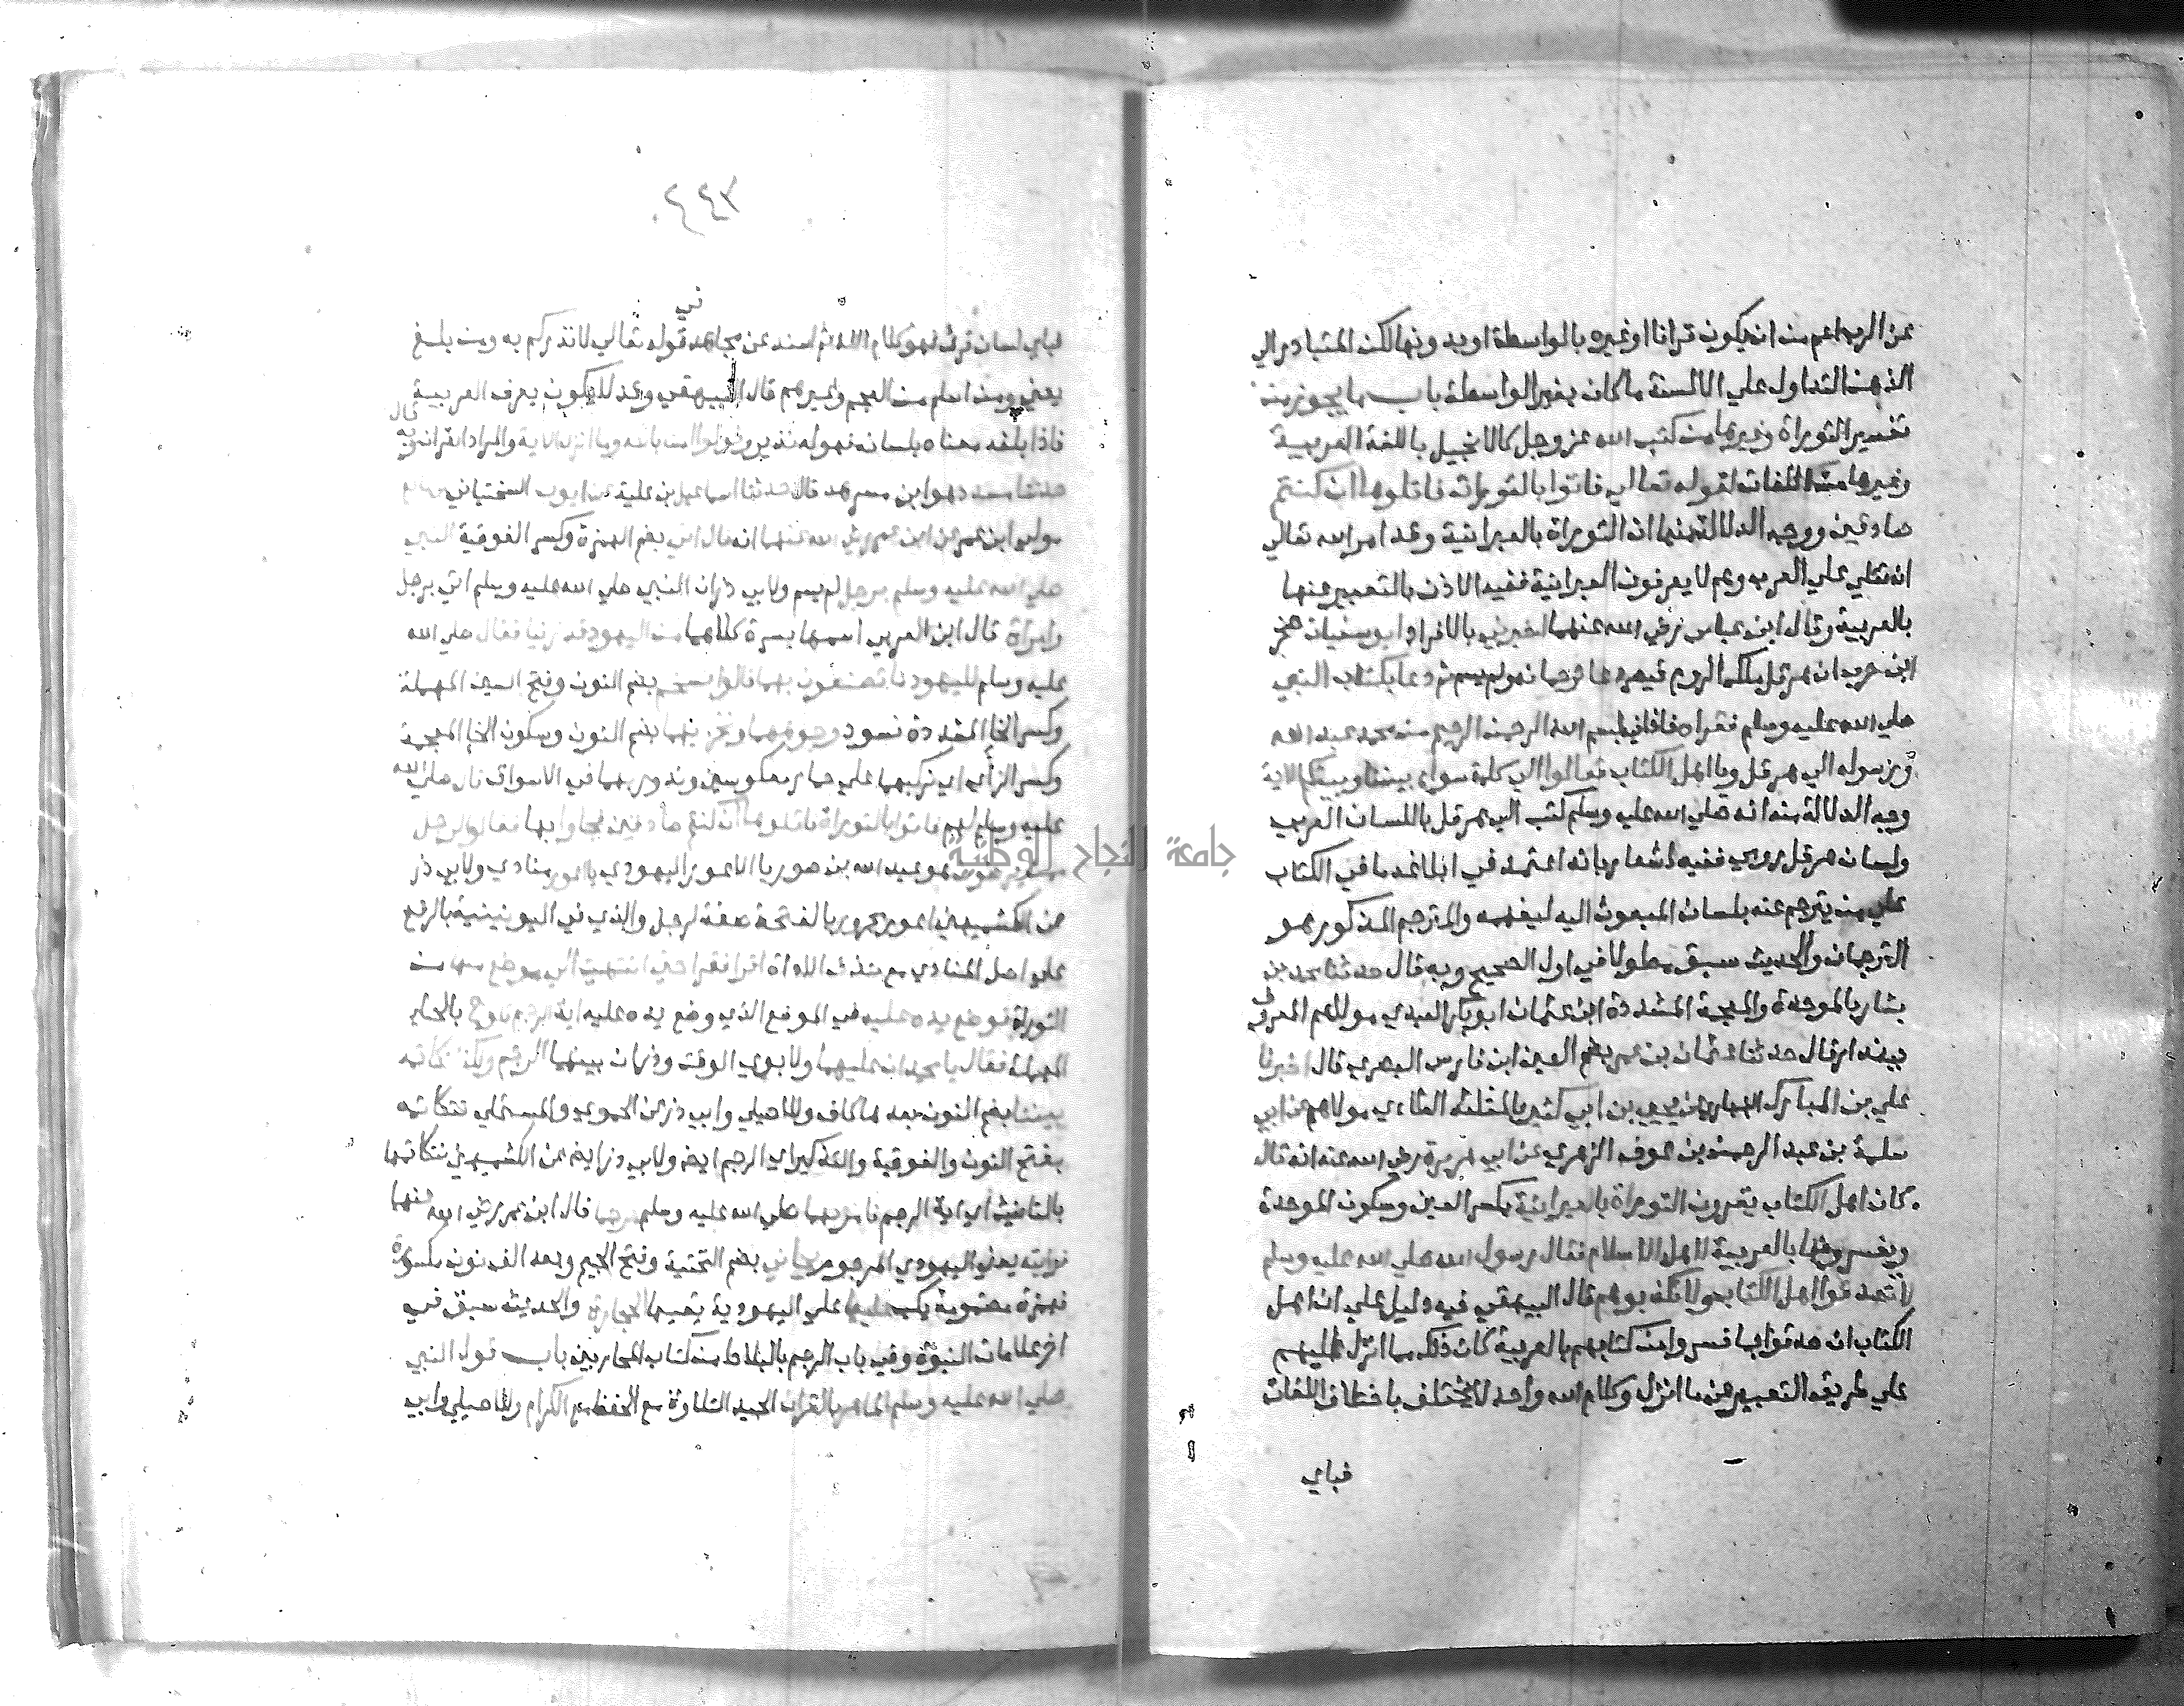 عن الرب اعم من ان يكون قرانا او غيره بالواسطة او بدونها لكن المتبادر الي
الذهن المتداول علي الالسنة ما كان بغير الواسطة باب ما يجوز من
تفسير التوراة وغيرها من كتب الله عز وجل كالانجيل باللغة العربية
وغيرها من اللغات لقوله تعالي فاتوا بالتوراة فاتلوها ان كنتم
صادقين ووجه الدلالة منها ان التوراة بالعبرانية وقد امر الله تعالي
ان تتلي علي العرب وهم لا يعرفون العبرانية ففيه الاذن بالتعبير عنها
بالعربية وقال ابن عباس رضي الله عنهما اخبرني بالافراد ابو سفيان صخر
ابن حرب ان هرقل ملك الروم قيصر دعا ترجمانه ولم يسم ثم دعا بكتاب النبي
صلي الله عليه وسلم فقراه فاذا فيه بسم الله الرحمن الرحيم من محمد عبد الله
ورسوله الي هرقل ويا اهل الكتاب تعالوا الي كلمة سواء بيننا وبينكم الاية
وجه الدلالة منه انه صلي الله عليه وسلم كتب الي هرقل باللسان العربي
ولسان هرقل رومي ففيه اشعار بانه اعتمد في ابلاغه ما في الكتاب
علي من يترجم عنه بلسان المبعوث اليه ليفهمه والمترجم المذكور هو
الترجمان والحديث سبق مطولا في اول الصحيح وبه قال حدثنا محمد بن
بشار بالموحدة والمعجمة المشددة ابن عثمان ابو بكر العبدي مولاهم المعروف
ببندار قال حدثنا عثمان بن عمر بضم العين ابن فارس البصري قال اخبرنا
علي بن المبارك الهنائي عن يحيي بن ابي كثير بالمثلثة الطاءي مولاهم عن ابي
سلمة بن عبد الرحمن بن عوف الزهري عن ابي هريرة رضي الله عنه انه قال
كان اهل الكتاب يقرون التوراة بالعبرانية بكسر العين وسكون الموحدة
ويفسرونها بالعربية لاهل الاسلام فقال رسول الله صلي الله عليه وسلم
لا تصدقوا اهل الكتاب ولا تكذبوهم قال البيهقي فيه دليل علي ان اهل
الكتاب ان صدقوا بما فسروا من كتابهم بالعربية كان ذلك مما انزل عليهم
علي طريق التعبير عن ما انزل وكلام الله واحد لا يختلف باختلاف اللغات
فباي
٢٤٣
فباي لسان قرئ فهو كلام الله ثم اسند عن مجاهد في قوله تعالي لانذركم به ومن بلغ
يعني ومن اسلم من العجم وغيرهم قال البيهقي وقد لا يكون يعرف العربية
فاذا بلغه معناه بلسانه فهو له نذير وقولوا امنا بالله وما انزل الاية والمراد القران وبه قال
حدثنا مسدد هو ابن مسرهد قال حدثنا اسماعيل بن علية عن ايوب السختياني عن نافع
مولي ابن عمر عن ابن عمر رضي الله عنهما انه قال اتي بضم الهمزة وكسر الفوقية النبي
صلي الله عليه وسلم برجل لم يسم ولابي ذر ان النبي صلي الله عليه وسلم اتي برجل
وامراة قال ابن العربي اسمها بسرة كلاهما من اليهود قد زنيا فقال صلي الله
عليه وسلم لليهود ما تصنعون بهما قالوا نسخم بضم النون وفتح السين المهملة
وكسر الخا المشددة نسود وجوههما ونخزيهما بضم النون وسكون الخا المعجمة
وكسر الزاي اي نركبهما علي حمار معكوسين وندور بهما في الاسواق قال صلي الله
عليه وسلم لهم فاتوا بالتوراة فاتلوها ان كنتم صادقين فجاوا بها فقالوا لرجل
هو عبد الله بن صوريا الاعور اليهودي يا اعور منادي ولابي ذر
عن الكشميهني اعور مجرور بالفتحة صفة لرجل والذي في اليونينية بالرفع
علي اصل المنادي مع حذف الاداة اقرا فقرا حتي انتهي الي موضع منها من
التوراة فوضع يده عليه في الموضع الذي وضع يده عليه اية الرجم تلوح بالحاء
المهملة فقال يا محمد ان عليهما ولابوي الوقت وذر ان بينهما الرجم ولكنا نكاتمه
بيننا بضم النون بعدها كاف وللاصيلي وابي ذر عن الحموي والمستملي نتكاتمه
بفتح النون والفوقية والتذكير اي الرجم ايضا ولابي ذر ايضا عن الكشميهني نتكاتمها
بالتانيث اي اية الرجم فامر بهما صلي الله عليه وسلم فرجما قال ابن عمر رضي الله عنهما
فرايته يعني اليهودي المرجوم يجاني بضم التحتية وفتح الجيم وبعد الف نون مكسورة
فهمزة مضمومة يكب عليها علي اليهودية يقيها الحجارة والحديث سبق في
اخر علامات النبوة وفي باب الرجم بالبلاط من كتاب المحاربين باب قول النبي
صلي الله عليه وسلم الماهر بالقران الجيد التلاوة مع الحفظ مع الكرام وللاصيلي وابي
جامعة النجاح الوطنية